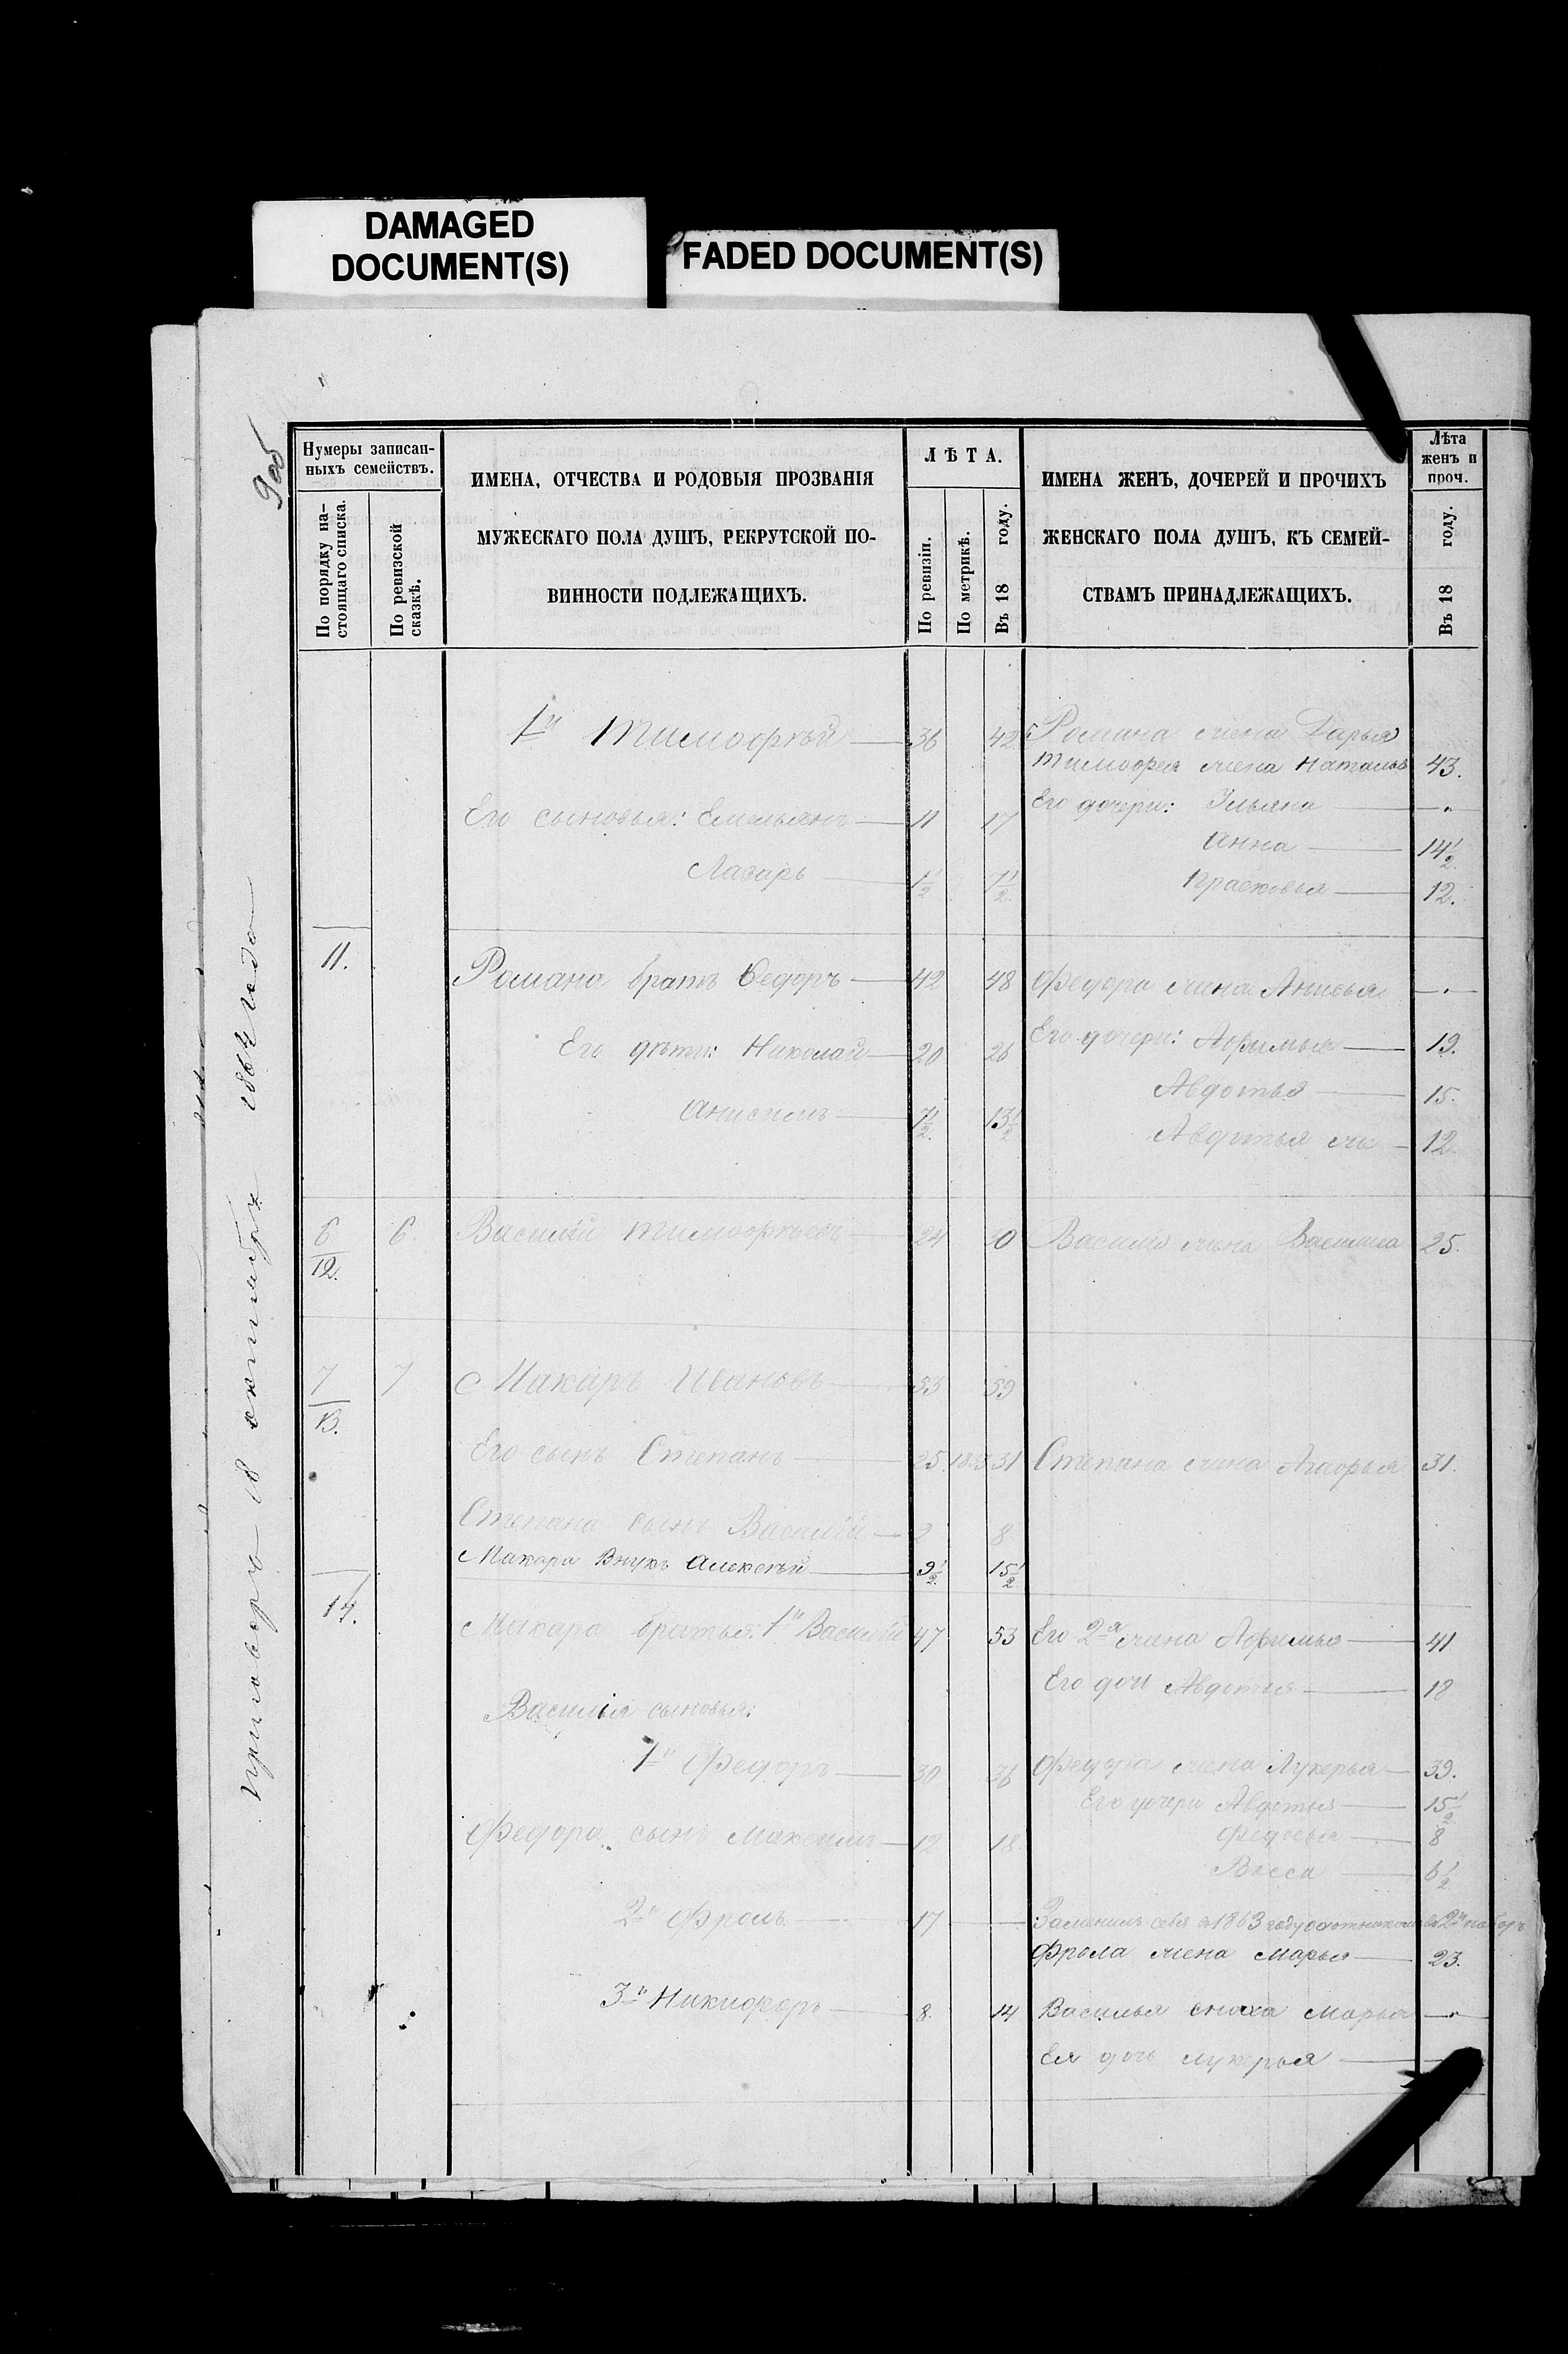 DAMAGED
DOCUMENT(S)
FADED DOCUMENT(S)
Нумеры записан-
ныхъ семействъ.
По порядку на-
стоящаго списка.
По ревизской
сказкѣ.
ИМЕНА, ОТЧЕСТВА И РОДОВЫЯ ПРОЗВАНІЯ
МУЖЕСКАГО ПОЛА ДУШЪ, РЕКРУТСКОЙ ПО-
ВИННОСТИ ПОДЛЕЖАЩИХЪ.
ЛѢТА.
По ревизіи.
По метрикѣ.
Въ 18 году.
ИМЕНА ЖЕНЪ, ДОЧЕРЕЙ И ПРОЧИХЪ
ЖЕНСКАГО ПОЛА ДУШЪ, КЪ СЕМЕЙ-
СТВАМЪ ПРИНАДЛЕЖАЩИХЪ.
Лѣта
женъ и
проч.
Въ 18 году.
1й Тимоофѣй — 36 42 Романа жена Дарья
Тимоофея жена Наталья 43.
Его сыновья: Емельянъ — 11 17 Его дочери: Ульяна — "
Анна — 14 1/2
Лазарь — 1 1/2 7 1/2 Прасковья — 12.
11. Романа братъ Ѳедоръ — 42 48 Федора жена Анисья — " —
Его дѣти: Николай — 20 26 Его дочери: Афимья — 19.
Авдотья — 15.
Анисимъ — 7 1/2 13 1/2 Авдотья — 12.
6/12. 6. Василій Тимоофѣевъ — 24 30 Василія жена Василиса 25.
7/13. 7 Макаръ Ивановъ — 53 59
Его сынъ Степанъ — 25 31 Степана жена Агафья 31.
Степана сынъ Василій — 2 8
Макара внукъ Алексѣй — 9 1/2 15 1/2
14. Макара братья: 1й Василій 47 53 Его 2я жена Афимья — 41
Его дочь Авдотья — 18
Василія сыновья:
1й Федоръ — 30 36 Федора жена Лукерья — 39.
Его дочери Авдотья — 15 1/2
Федора сынъ Максимъ — 12 18 Федосья — 8
Васса — 6 1/2
2й Фролъ — 17 — Замѣнилъ себя въ 1863 году охотникомъ въ 2й наборъ
Фрола жена Марья — 23.
3й Никифоръ — 8. 14 Василья сноха Марья — " —
Ея дочь Лукерья —
Приговоръ 18 октября 1864 года